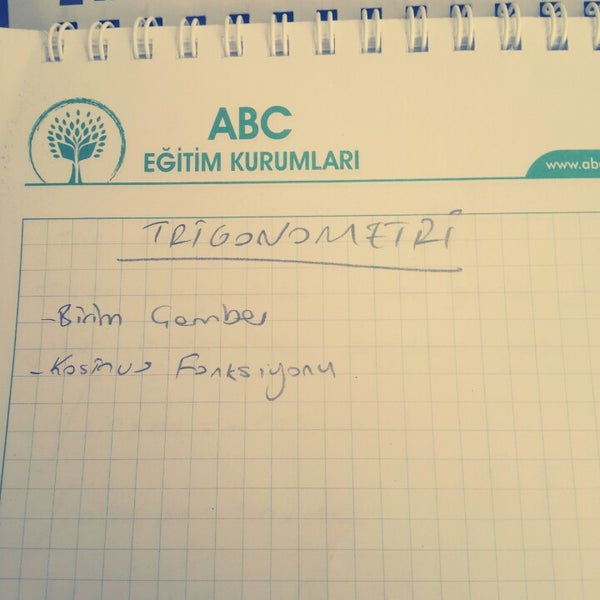 ABC
EĞİTİM KURUMLARI
www.ab
TRİGONOMETRİ
-Birim Çember
-Kosinüs Fonksiyonu